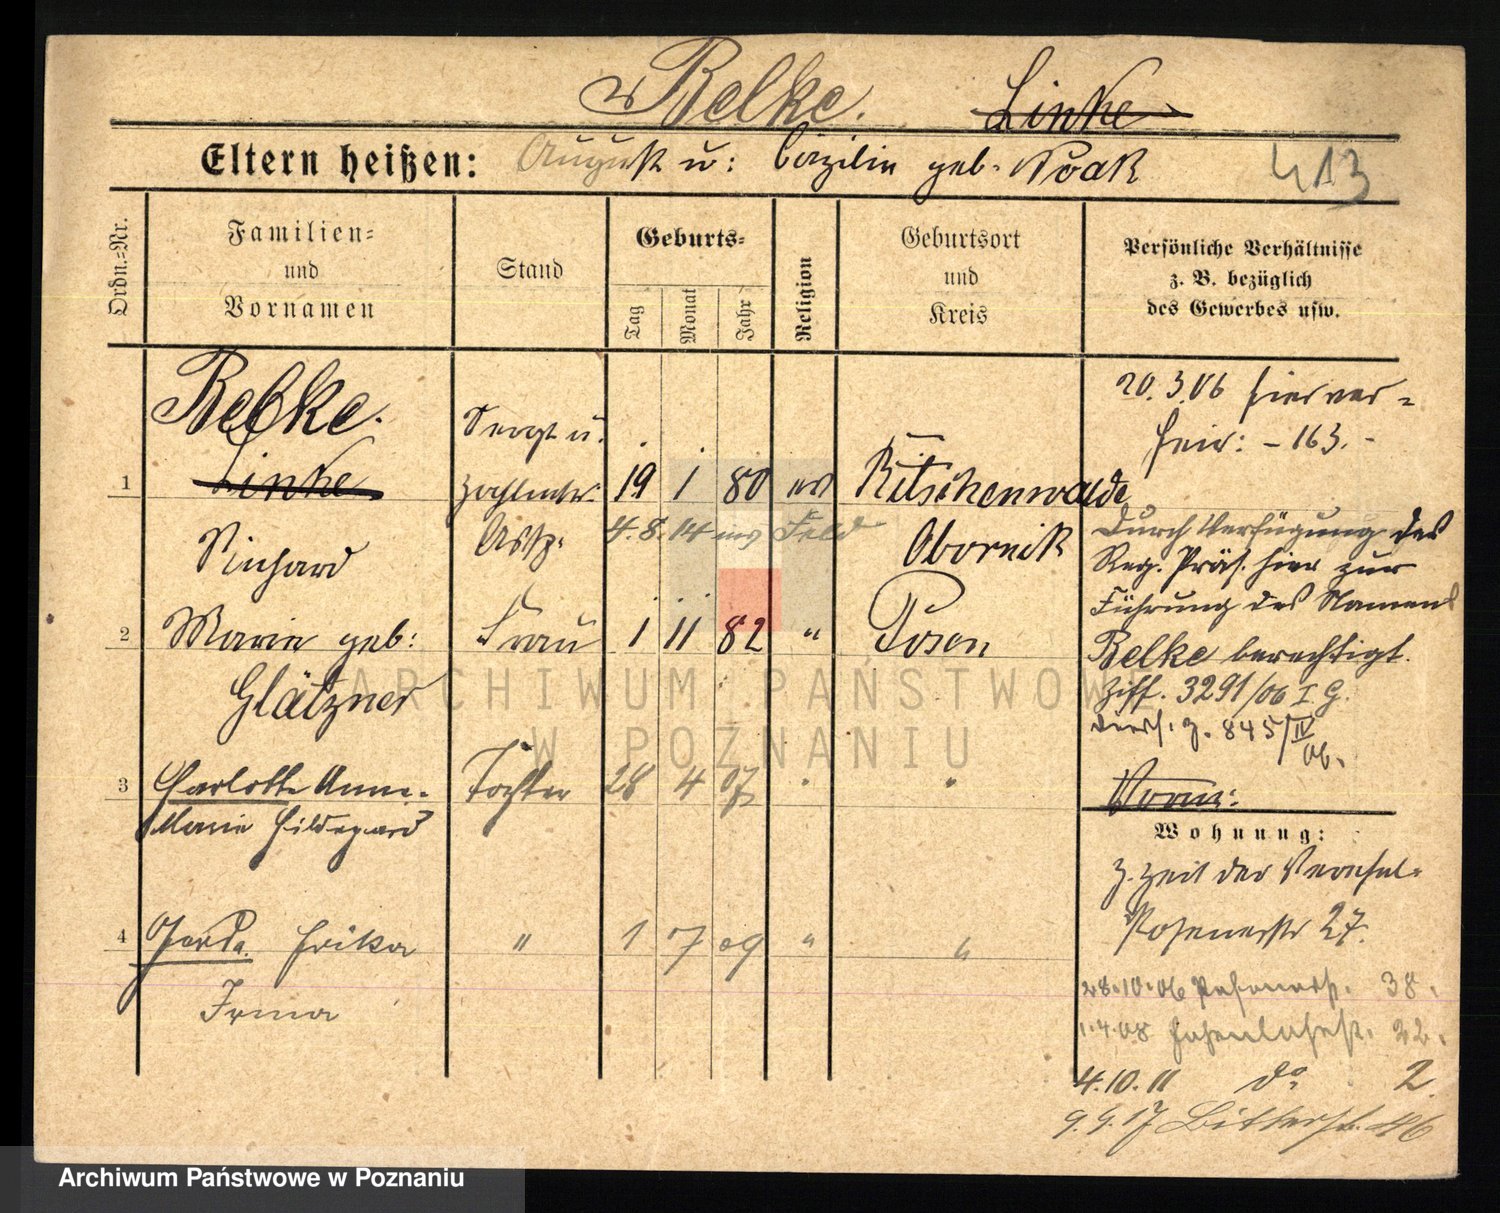 Belke. Linke
Eltern heißen: August u: Cäzilie geb. Noak
413
Ordn.=Nr.
Familien=
und
Vornamen
Stand
Geburts=
Tag
Monat
Jahr
Religion
Geburtsort
und
Kreis
Persönliche Verhältnisse
z. B. bezüglich
des Gewerbes usw.
Belke.
1 Linke
Richard
Sergt u.
Zahlmstr.
Asp.
19 1 80 ev
Ritschenwalde
Obornik
4.8.14 ins Feld
2 Marie geb: Frau 1 11 82 " Posen
Glätzner
3 Charlotte Anne- Tochter 28 4 07 " "
Marie Hildegard
4 Gerda Erika " 1 7 09 " "
Irma
20.3.06 hier ver=
heir: - 163. -
Durch Verfügung des
Reg. Präs. hier zur
Führung des Namens
Belke berechtigt.
Ziff. 3291/06 I G.
diess. Z. 845/IV
06.
Wohnung:
z. Zeit der
Posenerstr 27.
28.10.06 Posenerstr. 38.
1.4.08 Hohenlohestr. 22.
4.10.11 do 2.
9.9.17 Bitterstr. 46
ARCHIWUM PAŃSTWOWE
W POZNANIU
Archiwum Państwowe w Poznaniu